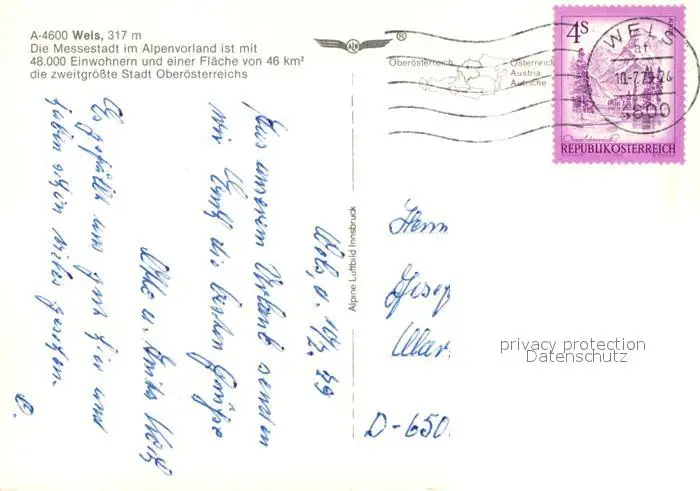 A-4600 Wels, 317 m
Die Messestadt im Alpenvorland ist mit
48.000 Einwohnern und einer Fläche von 46 km²
die zweitgrößte Stadt Oberösterreichs
®
Oberösterreich
Österreich
Austria
Autriche
4S
REPUBLIK ÖSTERREICH
WELS
10.-7.79-
4600
Alpine Luftbild Innsbruck
Wels, d. 10/7. 79
Aus unserem Urlaub senden
wir Euch die besten Grüße
Otto u.
Es gefällt uns gut hier und
haben schon vieles gesehen.
Herrn
Josef
Mar
D-650
privacy protection
Datenschutz